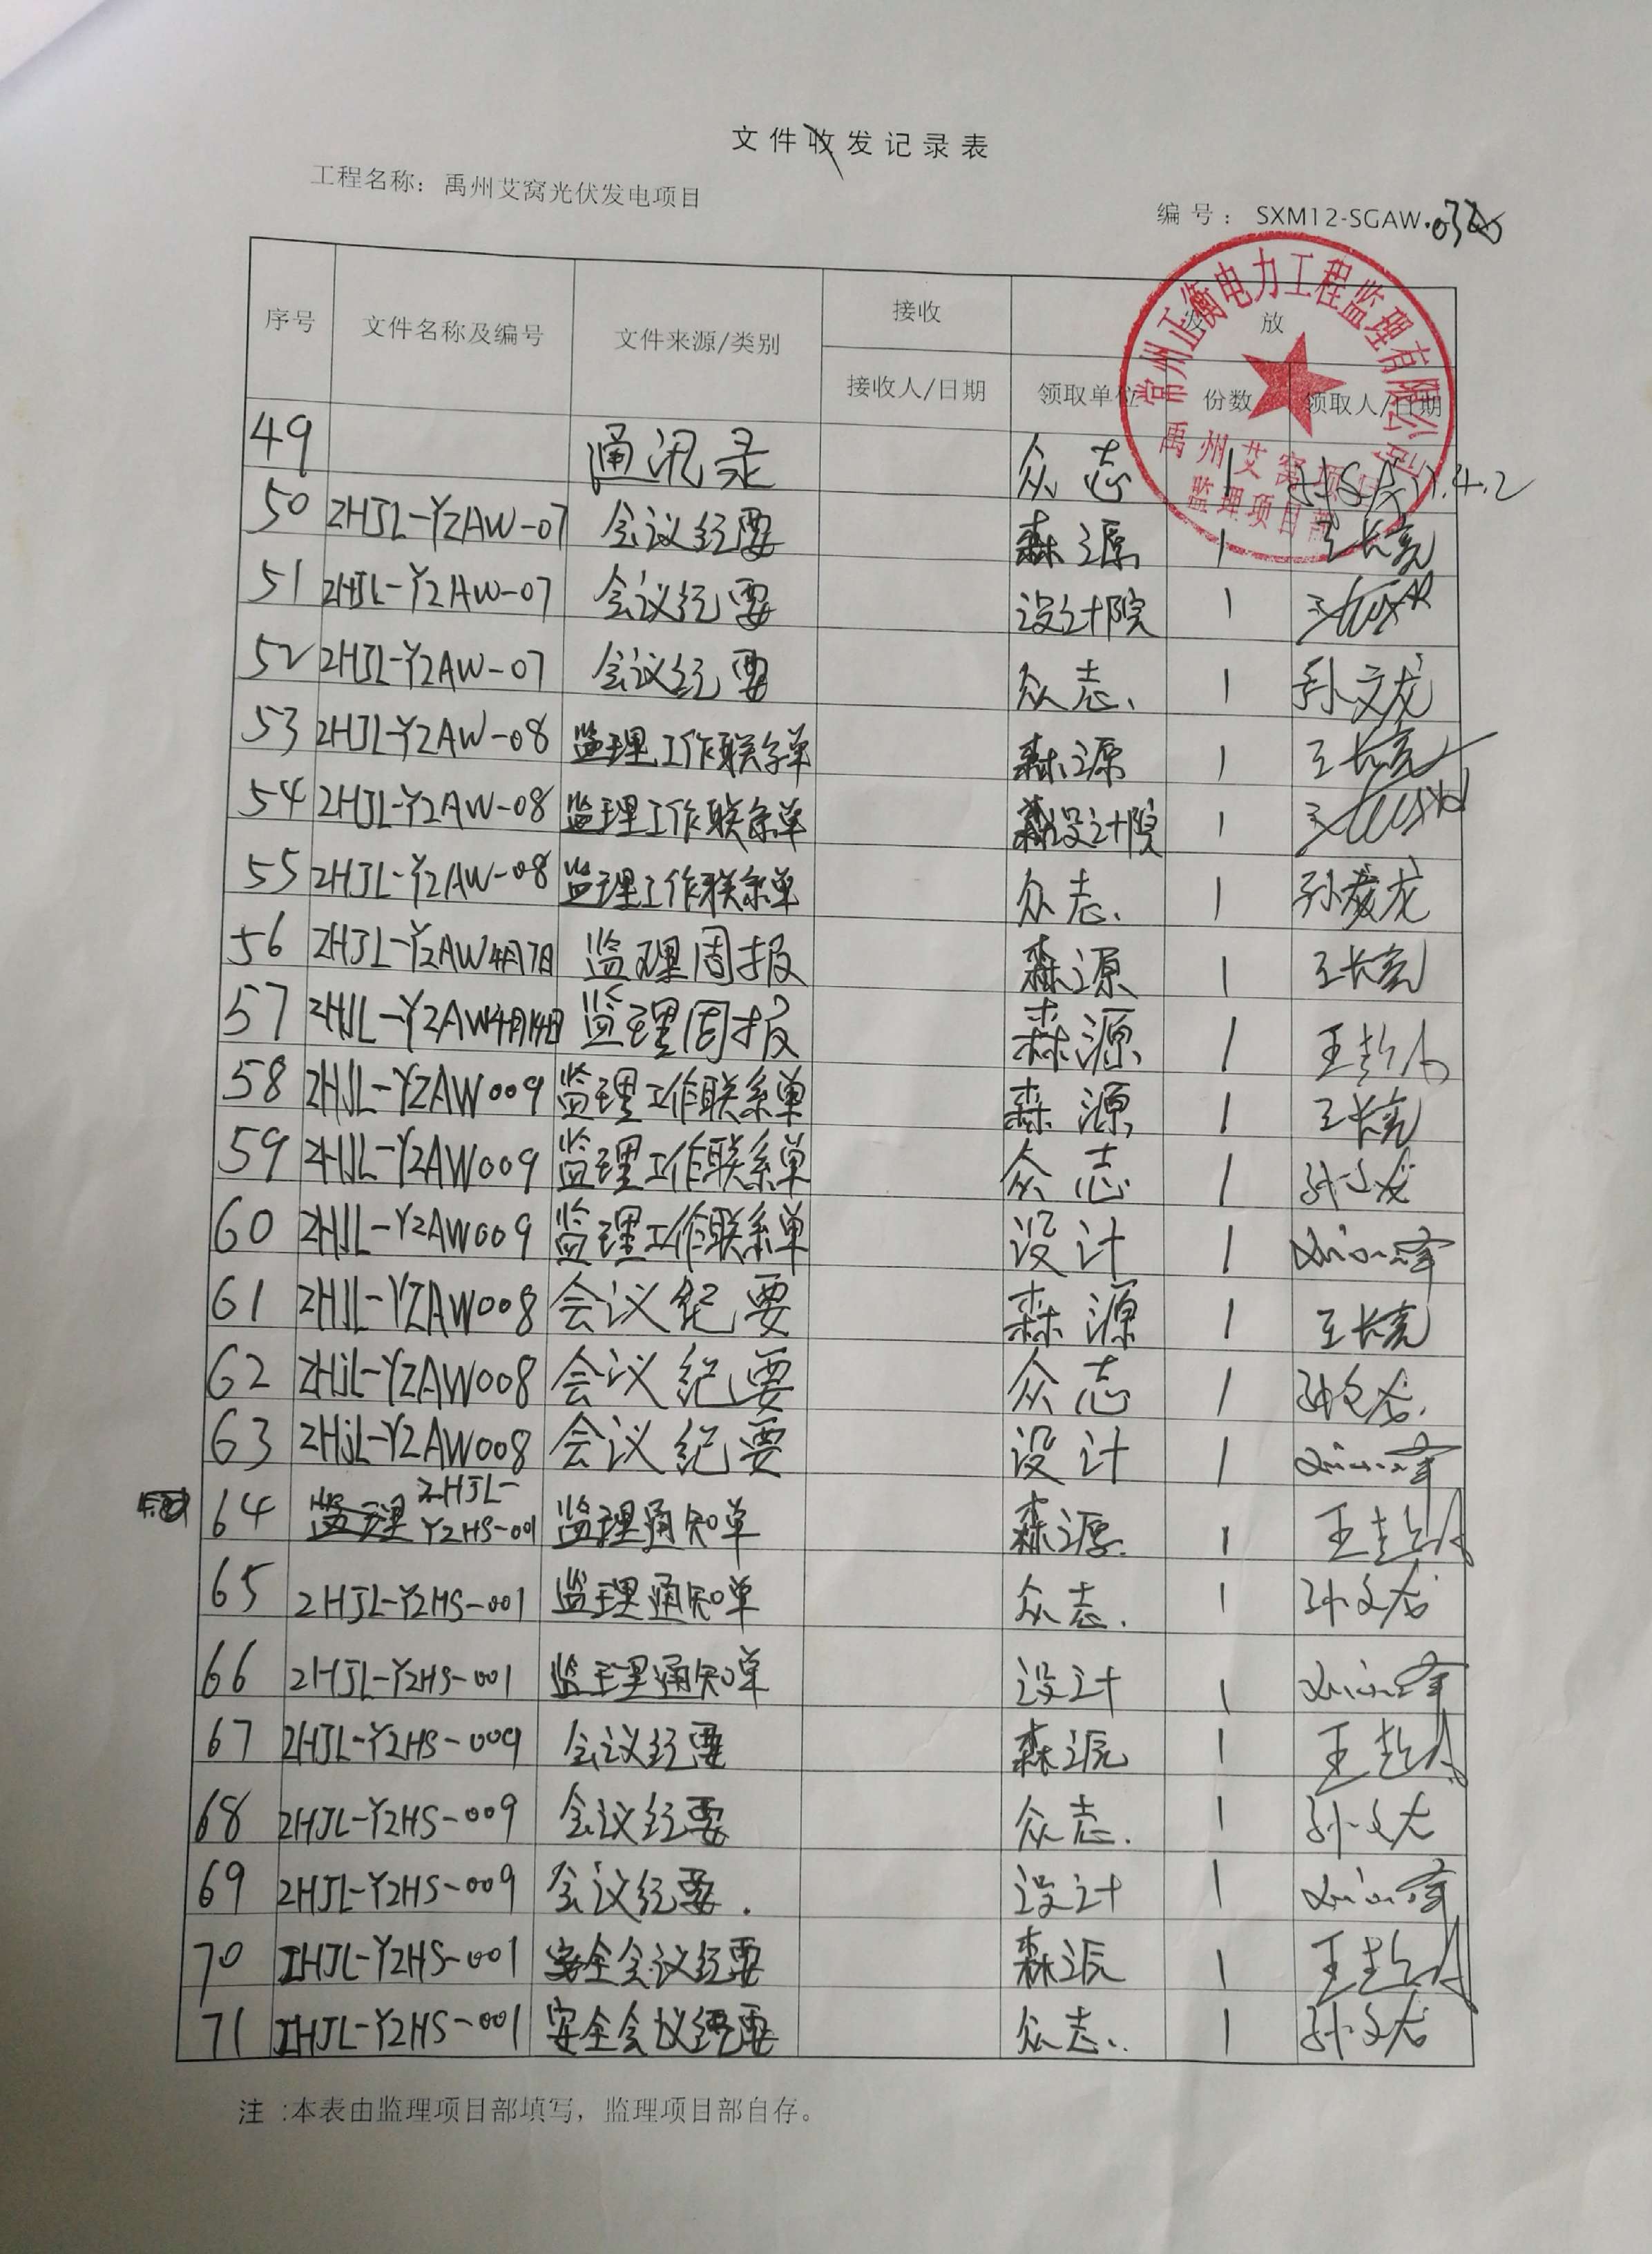 文件收发记录表
工程名称：禹州艾窝光伏发电项目
编号：SXM12-SGAW
常州正衡电力工程监理有限公司
禹州艾窝项目
监理项目部
序号 文件名称及编号 文件来源/类别 接收 发放
接收人/日期 领取单位 份数 领取人/日期
49 通讯录 众志 1
50 ZHJL-YZAW-07 会议纪要 森源 1 王长亮
51 ZHJL-YZAW-07 会议纪要 设计院 1
52 ZHJL-YZAW-07 会议纪要 众志 1 孙文龙
53 ZHJL-YZAW-08 监理工作联系单 森源 1 王长亮
54 ZHJL-YZAW-08 监理工作联系单 设计院 1
55 ZHJL-YZAW-08 监理工作联系单 众志 1 孙文龙
56 ZHJL-YZAW4月7日 监理周报 森源 1 王长亮
57 ZHJL-YZAW4月14日 监理周报 森源 1
58 ZHJL-YZAW009 监理工作联系单 森源 1 王长亮
59 ZHJL-YZAW009 监理工作联系单 众志 1 孙文龙
60 ZHJL-YZAW009 监理工作联系单 设计 1
61 ZHJL-YZAW008 会议纪要 森源 1 王长亮
62 ZHJL-YZAW008 会议纪要 众志 1 孙文龙
63 ZHJL-YZAW008 会议纪要 设计 1
64 ZHJL-YZHS-001 监理通知单 森源 1
65 ZHJL-YZHS-001 监理通知单 众志 1 孙文龙
66 ZHJL-YZHS-001 监理通知单 设计 1
67 ZHJL-YZHS-009 会议纪要 森源 1
68 ZHJL-YZHS-009 会议纪要 众志 1 孙文龙
69 ZHJL-YZHS-009 会议纪要 设计 1
70 ZHJL-YZHS-001 安全会议纪要 森源 1
71 ZHJL-YZHS-001 安全会议纪要 众志 1 孙文龙
注：本表由监理项目部填写，监理项目部自存。